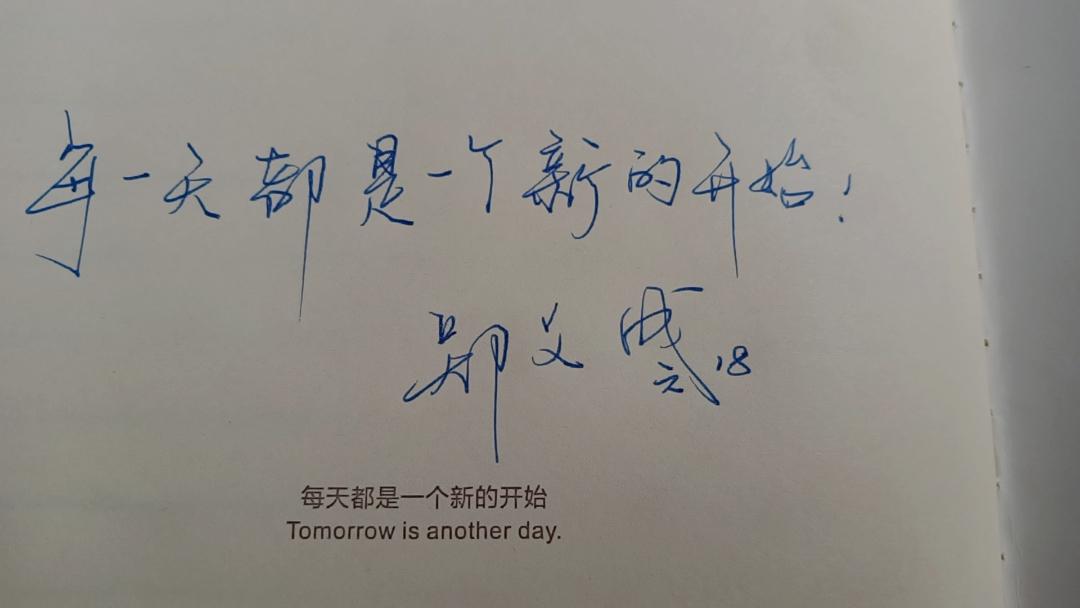 每一天都是一个新的开始!
郑文 '18
每天都是一个新的开始
Tomorrow is another day.